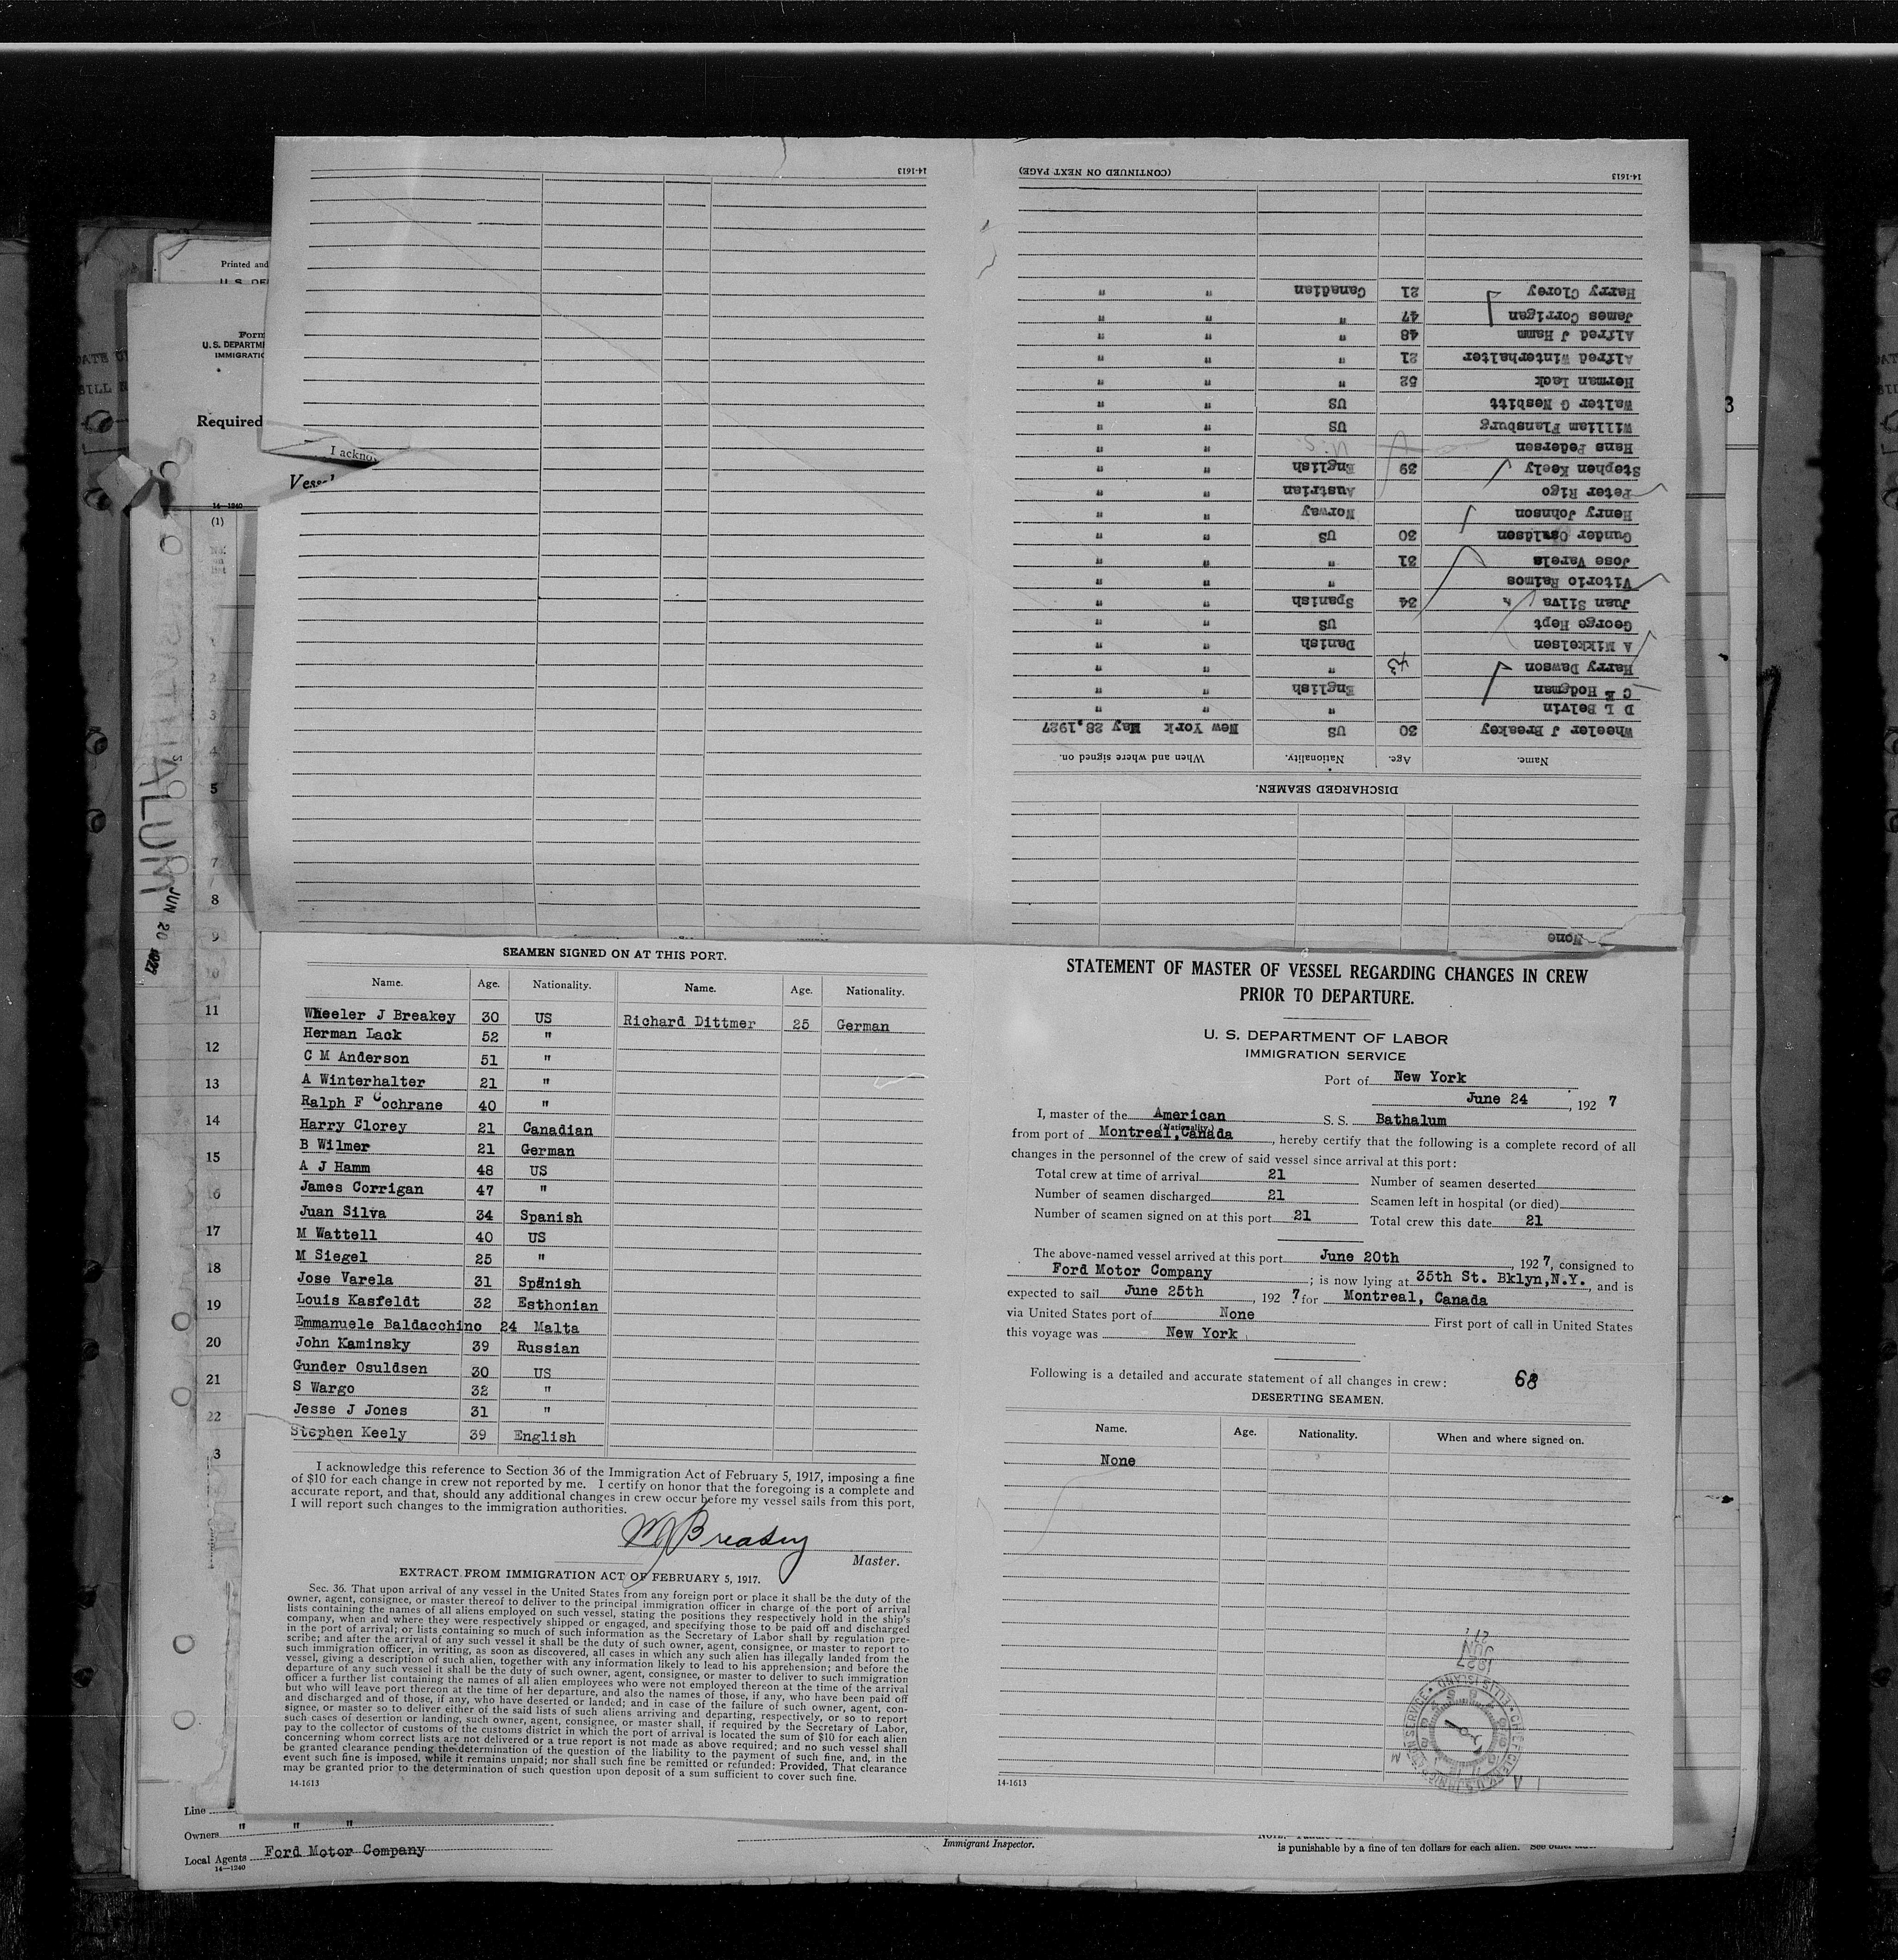 14-1613
(CONTINUED ON NEXT PAGE)
14-1613
Harry Clorey 21 Canadian " "
James Corrigan 47 " " "
Alfred J Hamm 48 " " "
Alfred Winterhalter 21 " " "
Herman Lack 52 " " "
Walter G Nesbitt US " "
William Flansburg US " "
Hans Pedersen U.S. " "
Stephen Keely 39 English " "
Peter Rigo Austrian " "
Henry Johnson Norway " "
Gunder Osuldsen 30 US " "
Jose Varela 31 " " "
Vitorio Ramos " " "
Juan Silva 34 Spanish " "
George Hept US " "
A Mikkelsen Danish " "
Harry Dawson 43 " " "
C E Hodgman English " "
D L Belvin " " "
Wheeler J Breakey 30 US New York May 28,1927
Name. Age. Nationality. When and where signed on.
DISCHARGED SEAMEN.
None
Printed and
Form
U. S. DEPARTM
IMMIGRATIO
Required
I ackno
Vessel
14—1240
(1)
3
BATHALUM
JUN 20 1927
2
3
4
5
7
8
9
10
11
12
13
14
15
16
17
18
19
20
21
22
3
SEAMEN SIGNED ON AT THIS PORT.
Name. Age. Nationality. Name. Age. Nationality.
Wheeler J Breakey 30 US Richard Dittmer 25 German
Herman Lack 52 "
C M Anderson 51 "
A Winterhalter 21 "
Ralph F Cochrane 40 "
Harry Clorey 21 Canadian
B Wilmer 21 German
A J Hamm 48 US
James Corrigan 47 "
Juan Silva 34 Spanish
M Wattell 40 US
M Siegel 25 "
Jose Varela 31 Spanish
Louis Kasfeldt 32 Esthonian
Emmanuele Baldacchino 24 Malta
John Kaminsky 39 Russian
Gunder Osuldsen 30 US
S Wargo 32 "
Jesse J Jones 31 "
Stephen Keely 39 English
I acknowledge this reference to Section 36 of the Immigration Act of February 5, 1917, imposing a fine
of $10 for each change in crew not reported by me. I certify on honor that the foregoing is a complete and
accurate report, and that, should any additional changes in crew occur before my vessel sails from this port,
I will report such changes to the immigration authorities.
Master.
EXTRACT FROM IMMIGRATION ACT OF FEBRUARY 5, 1917.
Sec. 36. That upon arrival of any vessel in the United States from any foreign port or place it shall be the duty of the
owner, agent, consignee, or master thereof to deliver to the principal immigration officer in charge of the port of arrival
lists containing the names of all aliens employed on such vessel, stating the positions they respectively hold in the ship's
company, when and where they were respectively shipped or engaged, and specifying those to be paid off and discharged
in the port of arrival; or lists containing so much of such information as the Secretary of Labor shall by regulation pre-
scribe; and after the arrival of any such vessel it shall be the duty of such owner, agent, consignee, or master to report to
such immigration officer, in writing, as soon as discovered, all cases in which any such alien has illegally landed from the
vessel, giving a description of such alien, together with any information likely to lead to his apprehension; and before the
departure of any such vessel it shall be the duty of such owner, agent, consignee, or master to deliver to such immigration
officer a further list containing the names of all alien employees who were not employed thereon at the time of the arrival
but who will leave port thereon at the time of her departure, and also the names of those, if any, who have been paid off
and discharged and of those, if any, who have deserted or landed; and in case of the failure of such owner, agent, con-
signee, or master so to deliver either of the said lists of such aliens arriving and departing, respectively, or so to report
such cases of desertion or landing, such owner, agent, consignee, or master shall, if required by the Secretary of Labor,
pay to the collector of customs of the customs district in which the port of arrival is located the sum of $10 for each alien
concerning whom correct lists are not delivered or a true report is not made as above required; and no such vessel shall
be granted clearance pending the determination of the question of the liability to the payment of such fine, and, in the
event such fine is imposed, while it remains unpaid; nor shall such fine be remitted or refunded: Provided, That clearance
may be granted prior to the determination of such question upon deposit of a sum sufficient to cover such fine.
14-1613
STATEMENT OF MASTER OF VESSEL REGARDING CHANGES IN CREW
PRIOR TO DEPARTURE.
U. S. DEPARTMENT OF LABOR
IMMIGRATION SERVICE
Port of New York
June 24, 1927
I, master of the American S. S. Bathalum
(Nationality.)
from port of Montreal, Canada, hereby certify that the following is a complete record of all
changes in the personnel of the crew of said vessel since arrival at this port:
Total crew at time of arrival 21 Number of seamen deserted
Number of seamen discharged 21 Seamen left in hospital (or died)
Number of seamen signed on at this port 21 Total crew this date 21
The above-named vessel arrived at this port June 20th, 1927, consigned to
Ford Motor Company; is now lying at 35th St. Bklyn,N.Y., and is
expected to sail June 25th, 1927 for Montreal, Canada
via United States port of None First port of call in United States
this voyage was New York
Following is a detailed and accurate statement of all changes in crew: 68
DESERTING SEAMEN.
Name. Age. Nationality. When and where signed on.
None
JUN
1927
14-1613
Line
Owners " " "
Local Agents Ford Motor Company
14—1240
Immigrant Inspector.
is punishable by a fine of ten dollars for each alien.